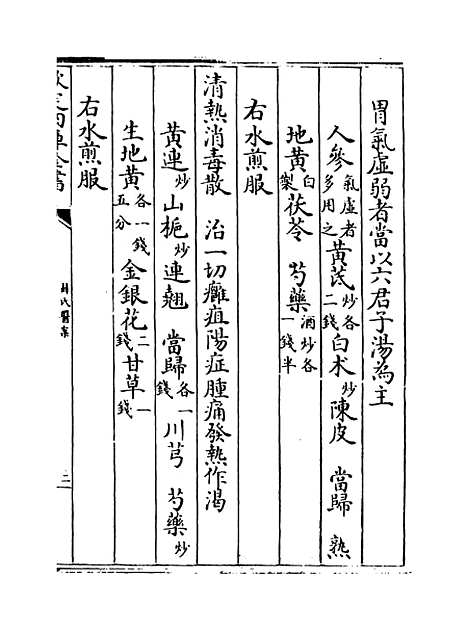 胃氣虛弱者當以六君子湯為主
人參氣虛者多用之黃芪炒各二錢白术炒陳皮 當歸 熟
地黃自製茯苓 芍藥酒炒各一錢半
右水煎服
清熱消毒散 治一切癰疽陽症腫痛發熱作渴
黃連炒山梔炒連翹 當歸各一錢川芎 芍藥炒
生地黃各一錢五分金銀花二錢甘草一錢
右水煎服
欽定四庫全書
薛氏醫案
二